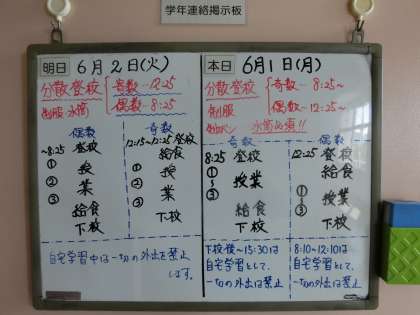 学年連絡掲示板
明日 6月2日(火)
分散登校 奇数→12:25
制服 水筒 偶数→8:25
偶数
~8:25 登校
① 授
② 業
③
給食
下校
奇数
12:15~12:25 登校
給食
① 授
②
③ 業
下校
自宅学習中は一切の外出を禁止
します。
本日 6月1日(月)
分散登校 奇数→8:25~
制服 偶数→12:25~
水筒必須!!
奇数
8:25 登校
①
~ 授業
③
給食
下校
偶数
12:25 登校
給食
①
~ 授業
③
下校
下校後~15:30は
自宅学習として、
一切の外出は禁止
8:10~12:10は
自宅学習として、
一切の外出は禁止